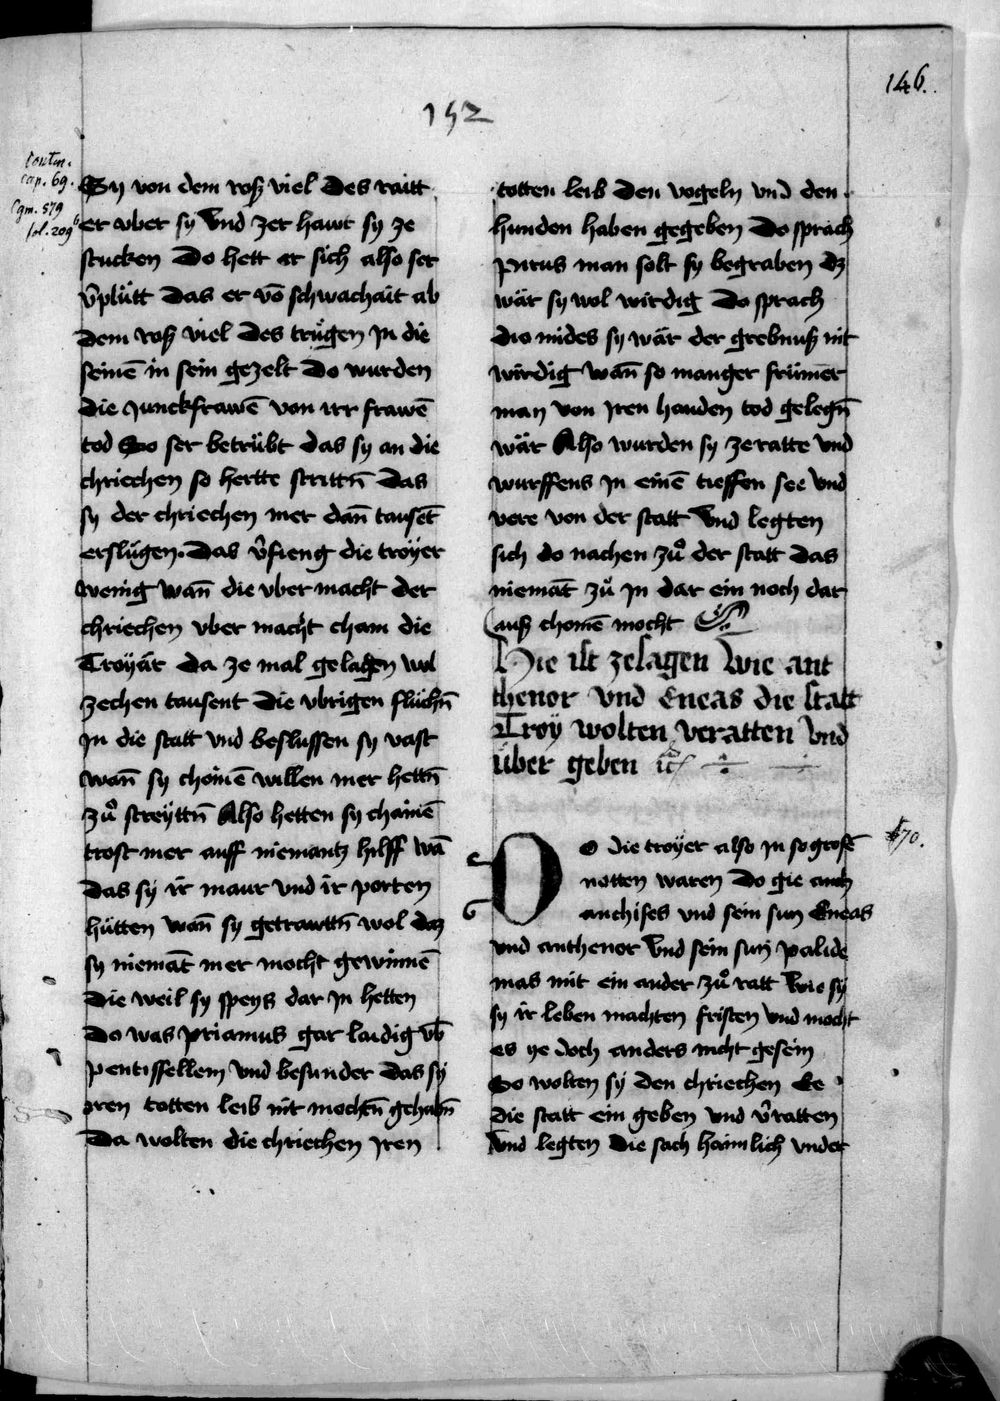 146.
152
Contin.
cap. 69.
Cgm. 579
fol. 209b
Sy von dem roß viel Des raitt
er vber sy Vnd zer hawt sy ze
stucken Do hett er sich also ser
v̄plütt das er vō schwachait ab
dem roß viel des trügen jn die
seinē in sein gezelt Do wurden
die Junckfrawē von irr frawē
tod So ser betrübt das sy an die
chriechen so hertte strittn̄ Das
sy der chriechen mer dan̄ tausēt
erslügen. Das v̄fieng die troyer
wenig wan̄ die vber macht der
chriechen vber macht cham die
Troyär da ze mal gelagen wol
zechen tausent Die vbrigen flüchn̄
jn die statt vnd beslussen sy vast
wan̄ sy chainē willen mer hettn̄
zů streyttn̄ Also hetten sy chainē
trost mer auff niemantz hilff wā
das sy ir maur vnd ir porten
hütten wan̄ sy getrawttn̄ wol daz
sy niemāt mer mocht gewinnē
die weil sy speyß dar jn hetten
Do was priamus gar laidig vb̄
pentissellem vnd besunder das sy
jren totten leib nit mochtn̄ gehabn̄
Da wolten die chriechen jren
totten leib den vogeln vnd den
hunden haben gegeben Do sprach
Pirus man solt sy begraben dz
wär sy wol wirdig Do sprach
dio mides sy wär der grebnuß nit
wirdig wan̄ so manger frümer
man von jren handen tod gelegn̄
wär Also wurden sy ze ratte vnd
wurffens jn einē tieffen see Vnd
vere von der statt Vnd legten
sich do nachen zů der statt das
niemāt zů jn dar ein noch dar
auß chomē mocht
Hie ist ze sagen wie ant
thenor vnd Eneas die statt
Troy wolten veratten vnd
über geben
70.
DO die troyer also jn so grosē
notten waren Do gie auch
anchises vnd sein sun Eneas
vnd anthenor vnd sein sun palide
mas mit ein ander zů ratt wie sy
sy ir leben machten fristen vnd mocht
es ye doch anders nicht gesein
So wolten sy den chriechen Ee
die statt ein geben vnd v̄ratten
Vnd legten die sach haimlich vnder